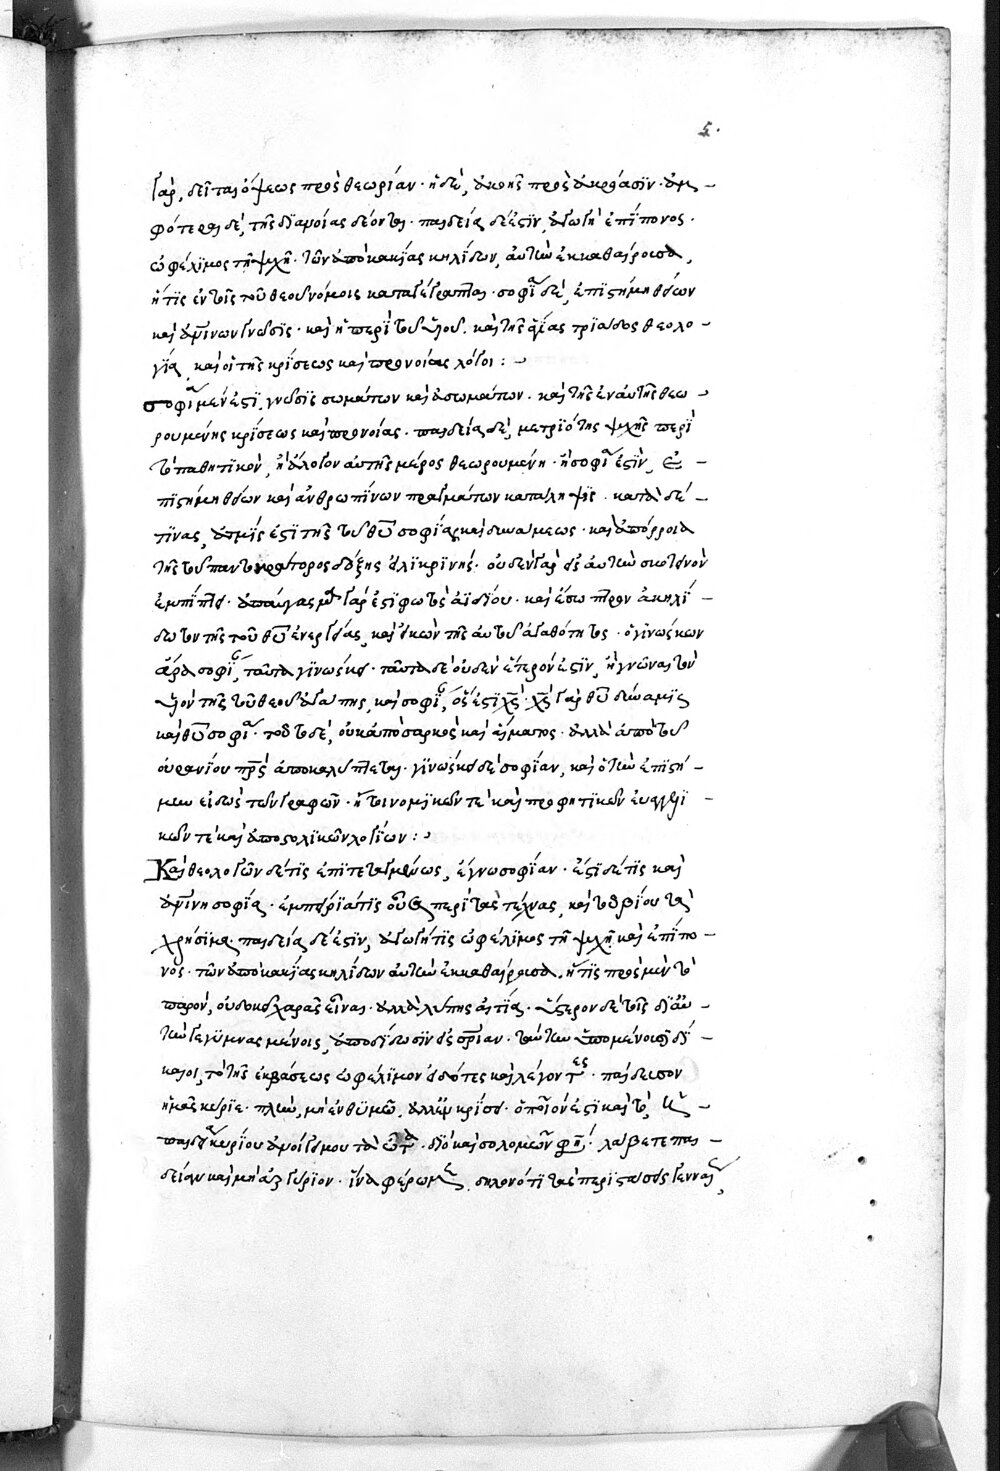 5.
γὰρ, δεῖται ὄψεως πρὸς θεωρίαν· ἡ δὲ, ἀκοῆς πρὸς ἀκρόασϊν· ἀμ-
φότερα δὲ, τῆς δϊανοίας δέονται· παιδεία δέ ἐστϊν, ἀγωγὴ ἐπίπονος·
ὠφέλϊμος τῇ ψυχῇ· τῶν ἀπὸ κακίας κηλίδων, αὐτὴν ἐκκαθαίρουσα,
ἥτϊς ἐν τοῖς τοῦ θεοῦ νόμοις καταγέγραπται· σοφία δὲ, ἐπϊστήμη θείων
καὶ ἀνϊνων γνῶσϊς· καὶ ἡ περὶ τοῦ υἱοῦ. καὶ τῆς ἁγίας τρϊάδος θεολο-
γία, καὶ οἱ τῆς κρίσεως καὶ προνοίας λόγοι:
σοφία μέν ἐστϊ, γνῶσϊς σωμάτων καὶ ἀσωμάτων. καὶ τῆς ἐν αὐτῆς θεω-
ρουμένης κρίσεως καὶ προνοίας· παιδεία δὲ, μετρϊότης ψυχῆς περὶ
τὸ παθητϊκὸν, ἢ ἄλογον αὐτῆς μέρος θεωρουμένη· ἡ σοφία ἐστϊν, ἐ-
πϊστήμη θείων καὶ ἀνθρωπίνων πραγμάτων κατάληψϊς· κατὰ δέ
τϊνας, ἀτμϊς ἐστϊ τῆς τοῦ θῦ σοφίας καὶ δυνάμεως· καὶ ἀπόρροια
τῆς τοῦ παντοκράτορος δόξης εἰλϊκρϊνής· οὐδὲν γὰρ εἰς αὐτὴν σκοτεινὸν
ἐμπίπτει· ἀπαύγασμα γάρ ἐστϊ φωτὸς ἀϊδίου· καὶ ἔσοπτρον ἀκηλί-
δωτον τῆς τοῦ θῦ ἐνεργείας, καὶ εἰκὼν τῆς αὐτοῦ ἀγαθότητος· ὁ γϊνώσκων
ἄρα σοφία, ταῦτα γϊνώσκει· ταῦτα δὲ οὐδὲν ἕτερόν ἐστϊν, ἢ γνῶναι τὸν
υἱὸν τῆς τοῦ θεοῦ ἀγάπης, καὶ σοφία, ὅς ἐστϊ χς· χς γὰρ θῦ δύναμϊς
καὶ θῦ σοφία· τοῦτο δὲ, οὐκ ἀπὸ σαρκὸς καὶ αἵματος· ἀλλὰ ἀπὸ τοῦ
οὐρανίου πρς ἀποκαλύπτεται· γϊνώσκει δὲ σοφίαν, καὶ ὁ τὴν ἐπϊστή-
μην εἰδὼς τῶν γραφῶν· ἤτοι νομϊκῶν τὲ καὶ προφητϊκῶν εὐαγγελϊ-
κῶν τὲ καὶ ἀποστολϊκῶν λογίων:
Καὶ θεολογῶν δέ τϊς ἐπϊτεταγμένως, ἔγνω σοφίαν· ἔστϊ δέ τϊς καὶ
ἀνϊνη σοφία· ἐμπειρία τϊς οὖσα περὶ τὰς τέχνας, καὶ τοῦ βίου τὰ
χρήσϊμα· παιδεία δέ ἐστϊν, ἀγωγή τϊς ὠφέλϊμος τῇ ψυχῇ καὶ ἐπίπο-
νος· τῶν ἀπὸ κακίας κηλίδων αὐτὴν ἐκκαθαίρουσα. ἥτϊς πρὸς μὲν τὸ
παρὸν, οὐ δοκεῖ χαρᾶς εἶναι· ἀλλὰ λύπης αἰτία· ὕστερον δὲ τοῖς δϊ' αὐ-
τὴν γεγυμνασμένοις, ἀποδίδωσϊν εἰς σρίαν· ταύτην ὑπομένουσϊ δί-
καιοι, τὸ τῆς ἐκβάσεως ὠφέλϊμον εἰδότες καὶ λέγοντες· παίδευσον
ἡμᾶς κύρϊε· πλὴν, μὴ ἐν θϋμῶ, ἀλλ' ἐν κρίσει· ὁποῖόν ἐστϊ καὶ τὸ, καὶ
παιδεία κυρίου ἀνοίγει μου τὰ ὦτα· διὸ καὶ σολομῶν φησὶ· λάβετε παι-
δείαν καὶ μὴ ἀργύρϊον· ἵνα φέρωμεν, δηλονότϊ τὰς περϊστάσεις γενναίως,